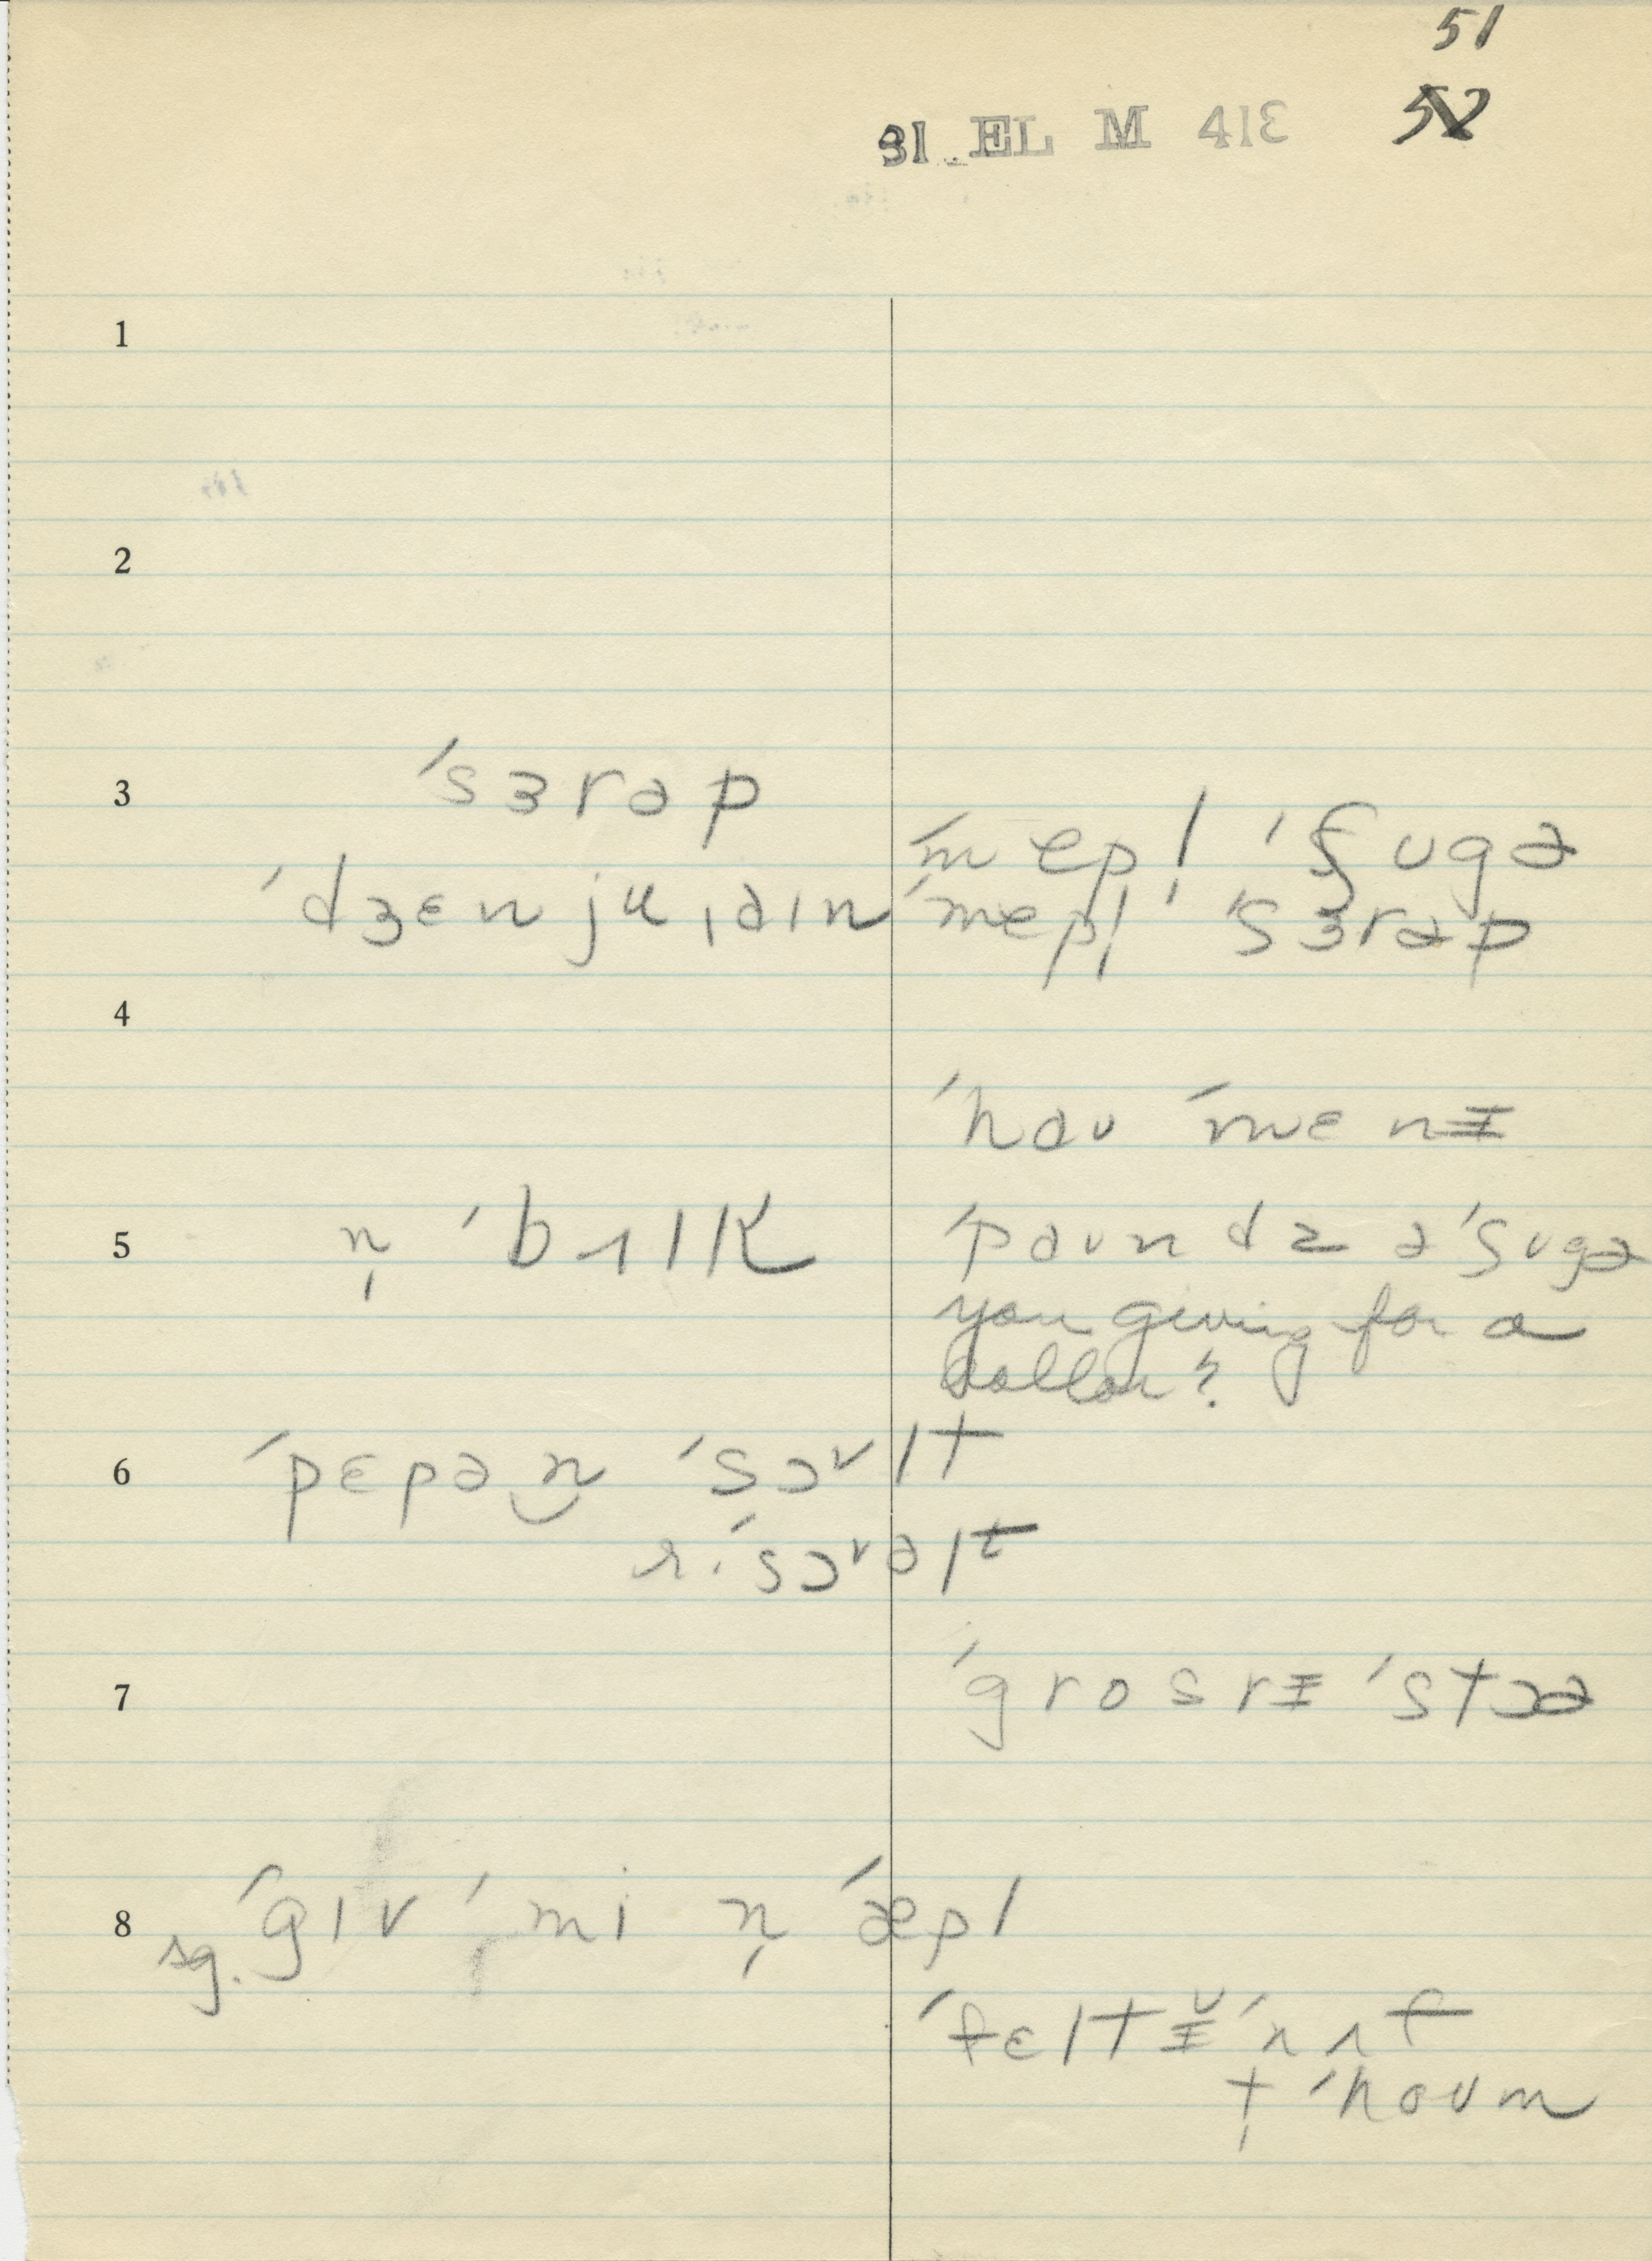 51
52
31 EL M 413
1
2
3 ˈsɜrəp
ˈmepl̩ ˈʃʊgə
ˈdʒɛnjuˌaɪn ˈmepl̩ ˈsɜrəp
4
ˈhaʊ ˈmɛnɪ
5 n̩ ˈbʌlk ˈpaʊndz ə ˈʃʊgə
you giving for a
dollar?
6 ˈpɛpən̯ ˈsɔᵛlt
r. ˈsɔᵛəlt
7 ˈgrosrɪ ˈstɔə
8 sg. ˈgɪv ˌmi n̩ ˈæpl
ˈfɛltɪ̆ ˈrʌf
t̩ ˈhoʊm